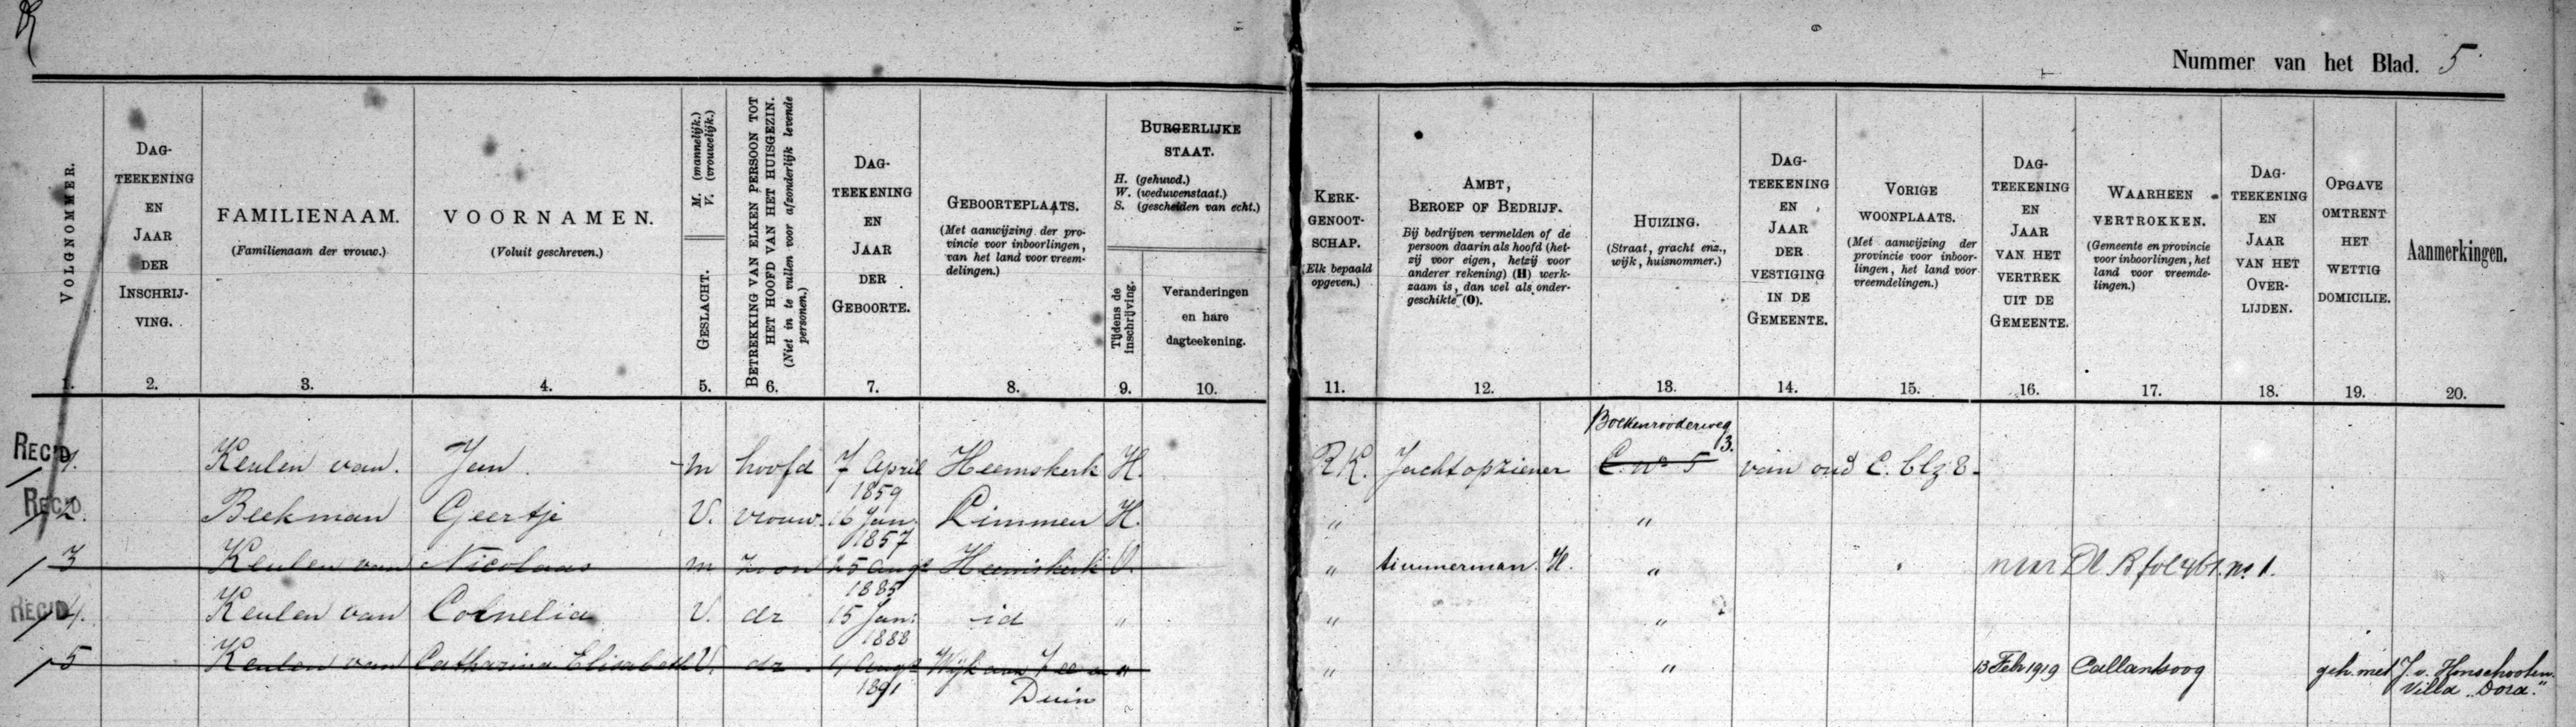 Nummer van het Blad. 5
VOLGNOMMER.
1.
DAG-
TEEKENING
EN
JAAR
DER
INSCHRIJ-
VING.
2.
FAMILIENAAM.
(Familienaam der vrouw.)
3.
VOORNAMEN.
(Voluit geschreven.)
4.
M. (mannelijk.)
V. (vrouwelijk.)
GESLACHT.
5.
BETREKKING VAN ELKEN PERSOON TOT
HET HOOFD VAN HET HUISGEZIN.
(Niet in te vullen voor afzonderlijk levende
personen.)
6.
DAG-
TEEKENING
EN
JAAR
DER
GEBOORTE.
7.
GEBOORTEPLAATS.
(Met aanwijzing der pro-
vincie voor inboorlingen,
van het land voor vreem-
delingen.)
8.
BURGERLIJKE
STAAT.
H. (gehuwd.)
W. (weduwenstaat.)
S. (gescheiden van echt.)
Tijdens de
inschrijving.
9.
Veranderingen
en hare
dagteekening.
10.
KERK-
GENOOT-
SCHAP.
(Elk bepaald
opgeven.)
11.
AMBT,
BEROEP OF BEDRIJF.
Bij bedrijven vermelden of de
persoon daarin als hoofd (het-
zij voor eigen, hetzij voor
anderer rekening) (H) werk-
zaam is, dan wel als onder-
geschikte (O).
12.
HUIZING.
(Straat, gracht enz.,
wijk, huisnommer.)
13.
DAG-
TEEKENING
EN
JAAR
DER
VESTIGING
IN DE
GEMEENTE.
14.
VORIGE
WOONPLAATS.
(Met aanwijzing der
provincie voor inboor-
lingen, het land voor
vreemdelingen.)
15.
DAG-
TEEKENING
EN
JAAR
VAN HET
VERTREK
UIT DE
GEMEENTE.
16.
WAARHEEN
VERTROKKEN.
(Gemeente en provincie
voor inboorlingen, het
land voor vreemde-
lingen.)
17.
DAG-
TEEKENING
EN
JAAR
VAN HET
OVER-
LIJDEN.
18.
OPGAVE
OMTRENT
HET
WETTIG
DOMICILIE.
19.
Aanmerkingen.
20.
Boekenrooderweg
3.
REC'D 1. Keulen van. Jan. m hoofd 7 April Heemskerk H. R K. Jachtopziener C. no 5 van oud C. blz 8.
1859
REC'D 2. Beekman Geertje V. vrouw. 16 Jan. Limmen H. " "
1857
3 Keulen van Nicolaas m zoon 25 Augs Heemskerk O. " timmerman. H. " naar Dl. B fol 461. no 1.
1885
REC'D 4. Keulen van Cornelia V. dr 15 Jan: id " " "
1888
5 Keulen van Catharina Elisabeth V. dr. 4 Augs Wijk aan Zee en " " " 13 Feb 1919 Callantsoog geh. met J. v. Honschooten.
1891 Duin Villa "Dora."